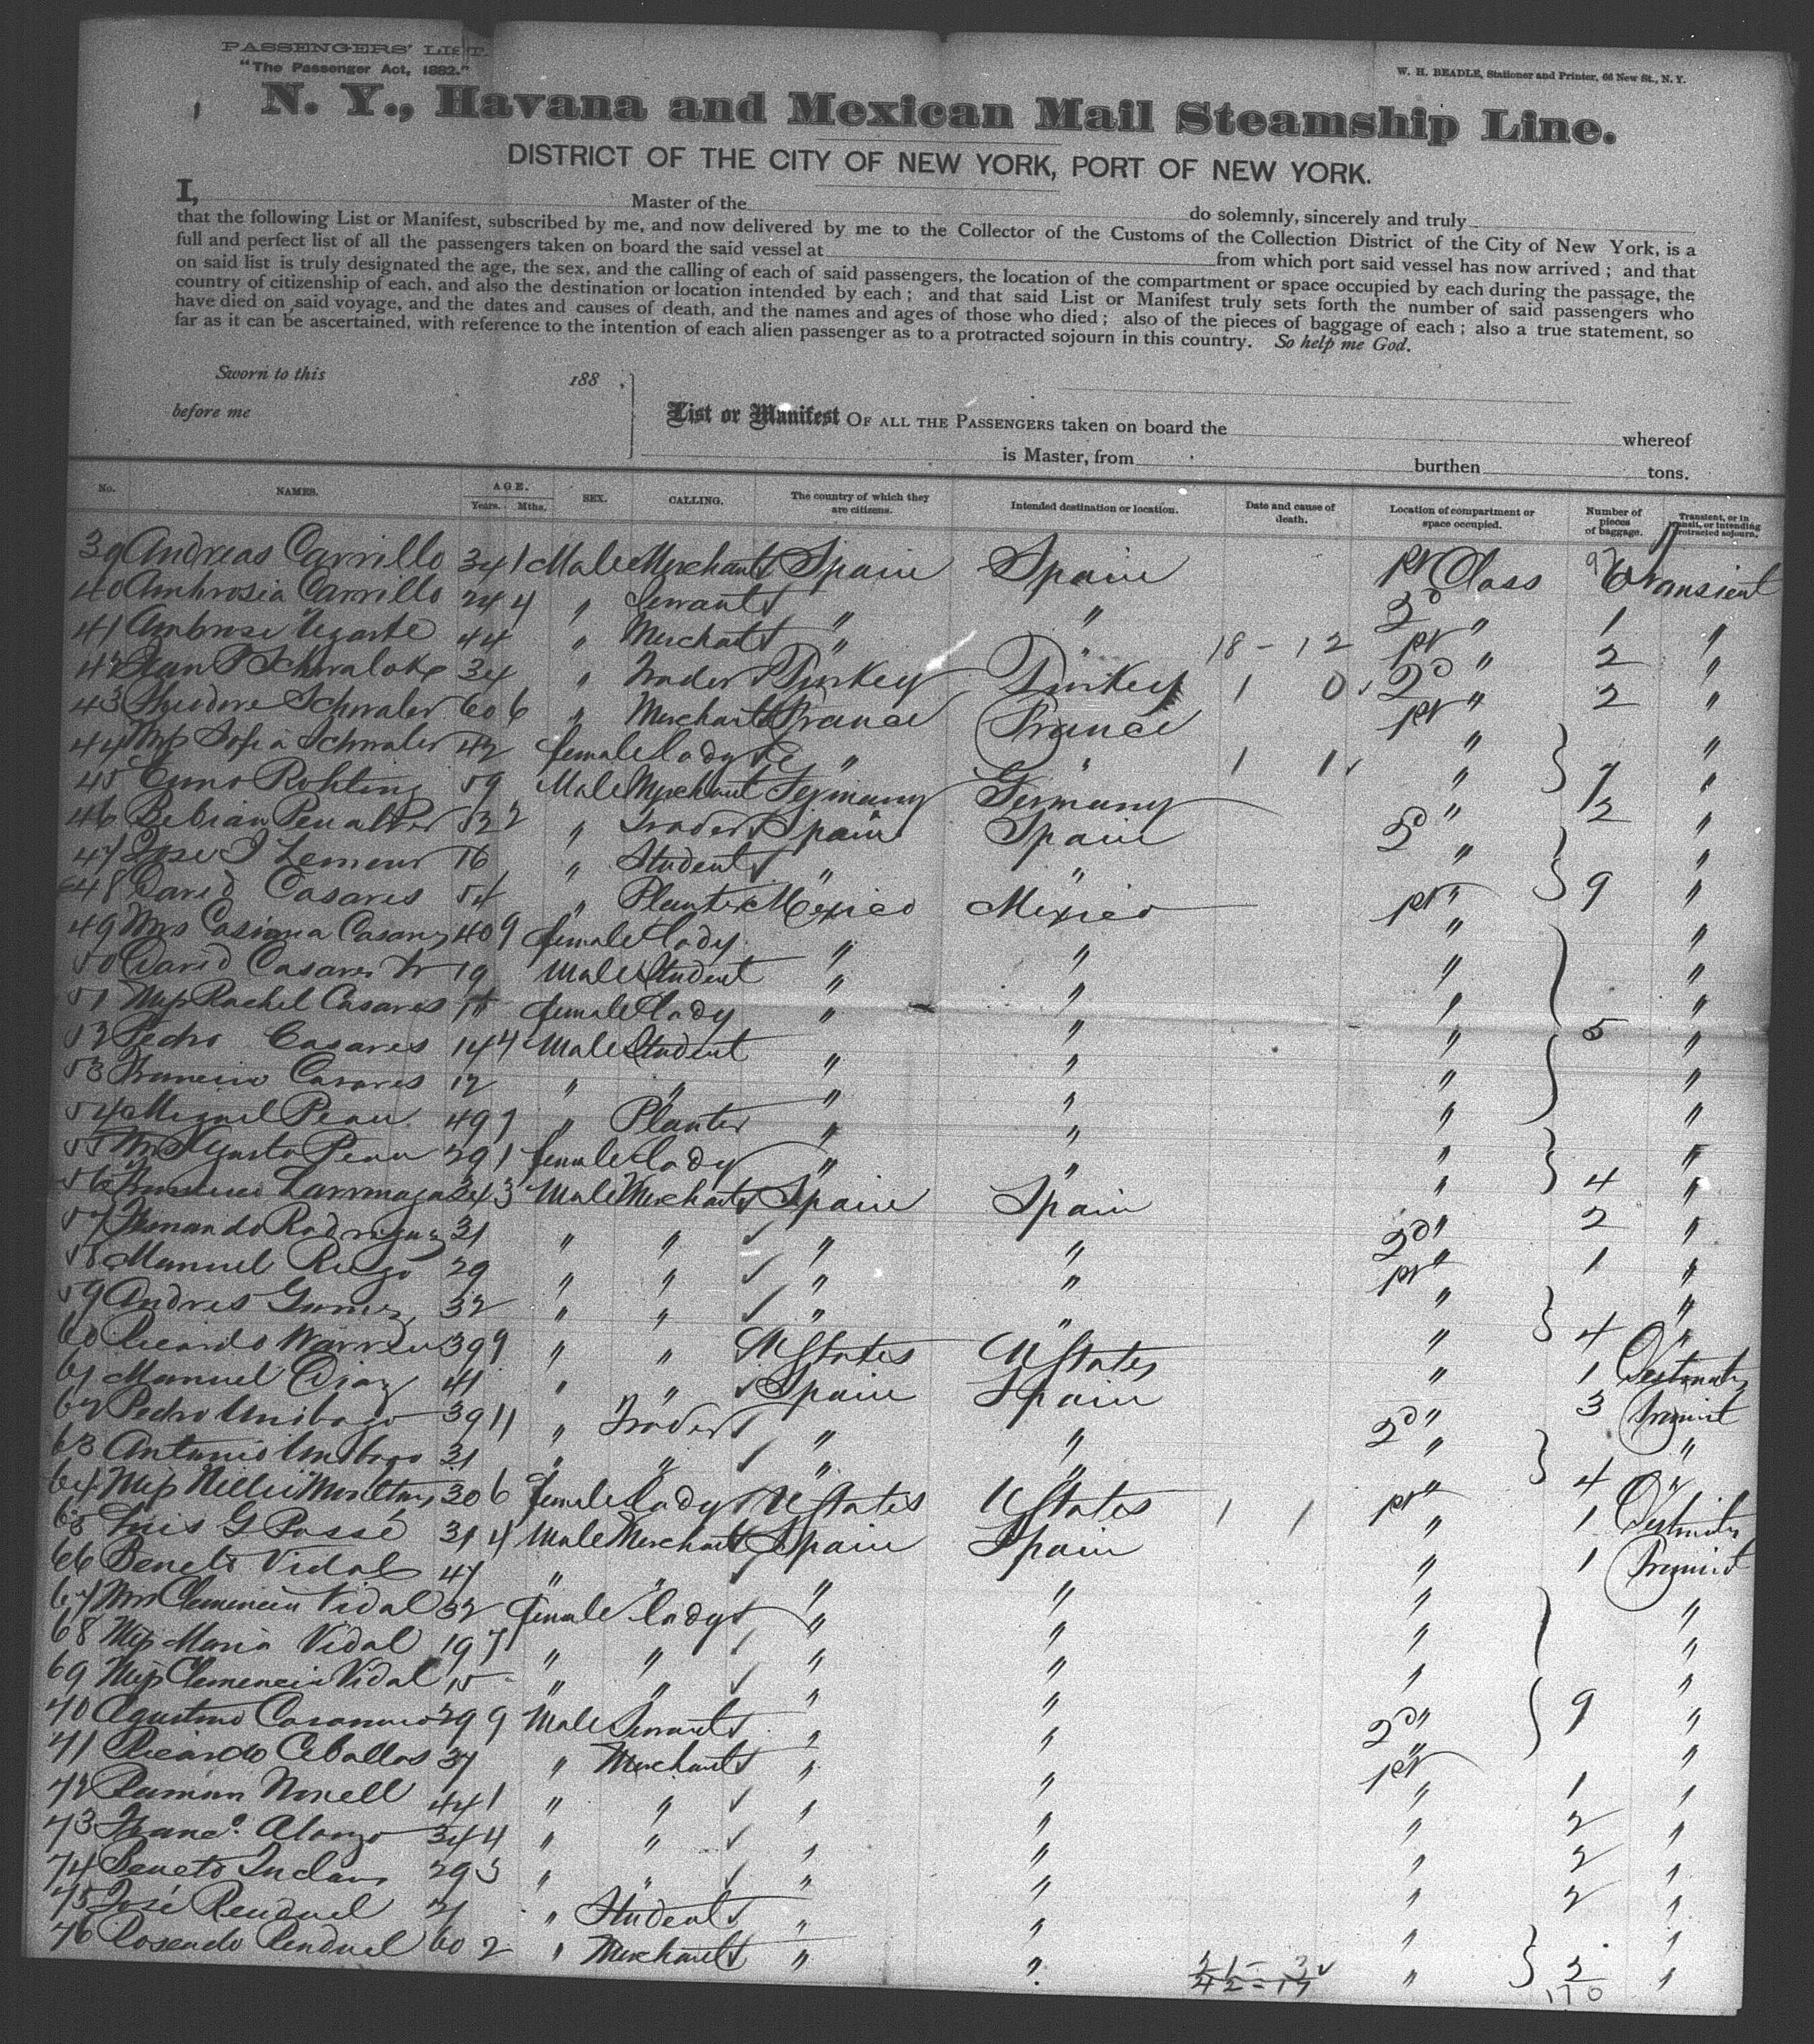 PASSENGERS' LIST.
"The Passenger Act, 1882."
W. H. BEADLE, Stationer and Printer, 66 New St., N. Y.
N. Y., Havana and Mexican Mail Steamship Line.
DISTRICT OF THE CITY OF NEW YORK, PORT OF NEW YORK.
I, Master of the do solemnly, sincerely and truly
that the following List or Manifest, subscribed by me, and now delivered by me to the Collector of the Customs of the Collection District of the City of New York, is a
full and perfect list of all the passengers taken on board the said vessel at from which port said vessel has now arrived; and that
on said list is truly designated the age, the sex, and the calling of each of said passengers, the location of the compartment or space occupied by each during the passage, the
country of citizenship of each, and also the destination or location intended by each; and that said List or Manifest truly sets forth the number of said passengers who
have died on said voyage, and the dates and causes of death, and the names and ages of those who died; also of the pieces of baggage of each; also a true statement, so
far as it can be ascertained, with reference to the intention of each alien passenger as to a protracted sojourn in this country. So help me God.
Sworn to this 188 .
before me
List or Manifest OF ALL THE PASSENGERS taken on board the whereof
is Master, from burthen tons.
No. NAMES. AGE. Years. Mths. SEX. CALLING. The country of which they are citizens. Intended destination or location. Date and cause of death. Location of compartment or space occupied. Number of pieces of baggage. Transient, or in transit, or intending protracted sojourn.
39 Andreas Carrillo 34 1 Male Merchant Spain Spain 1st Class Transient
40 Ambrosia Carrillo 24 4 " Servant " " 2d " 1 "
41 Ambrose Ugarte 44 " Merchant " " 18 - 12 1st " 2 "
42 34 " Trader Turkey Turkey 1 0 2d " 2 "
43 Theodore Schwaler 60 6 " Merchant France France 1st " "
44 Mrs Sofia Schwaler 42 female lady " " 1 1 " 7 "
45 Enno Rohting 59 Male Merchant Germany Germany " 12 "
46 Bebian Penalver 52 2 " Trader Spain Spain 2d " "
47 Jose J Lemeur 16 " Student " " " 9 "
48 David Casares 54 " Planter Mexico Mexico 1st " "
49 Mrs Casiana Casares 40 9 female lady " " " "
50 David Casares Jr 19 Male Student " " " "
51 Miss Rachel Casares female lady " " " 5 "
52 Pedro Casares 14 4 Male Student " " " "
53 Francisco Casares 12 " " " " " "
54 Miguel Peau 49 7 " Planter " " " "
55 Mrs Justa Peau 29 1 female lady " " " 4 "
56 Francisco Larrinaga 24 3 Male Merchant Spain Spain " 2 "
57 Fernando Rodriguez 31 " " " " 2d " 1 "
58 Manuel Rugo 29 " " " " 1st " "
59 Andres Gomez 32 " " " " " 4 "
60 Ricardo Warren 39 9 " " U States U States " 1
61 Manuel Diaz 41 " " Spain Spain " 3 Transient
62 Pedro Unibaso 39 11 " Trader " " 2d " "
63 Antonio Unibaso 31 " " " " " 4 "
64 Miss Nellie Moulton 30 6 female lady U States U States 1 1 1st " 1
65 Luis G Possé 31 4 Male Merchant Spain Spain " 1 Transient
66 Benito Vidal 47 " " " " " "
67 Mrs Clemencia Vidal 32 female lady " " " "
68 Miss Maria Vidal 19 7 " " " " " "
69 Miss Clemencia Vidal 15 " " " " " 9 "
70 Agustino Casanueva 29 9 Male Servant " " 2d " "
71 Ricardo Ceballos 37 " Merchant " " 1st 1 "
72 Ramon Nonell 44 1 " " " " " 2 "
73 Franco. Alonzo 34 4 " " " " " 2 "
74 Beneto Inclan 29 5 " " " " " 2 "
75 José Renduel 21 " Student " " " "
76 Rosendo Renduel 60 2 " Merchant " " 21 - 3 " 2 "
42 = 17 170